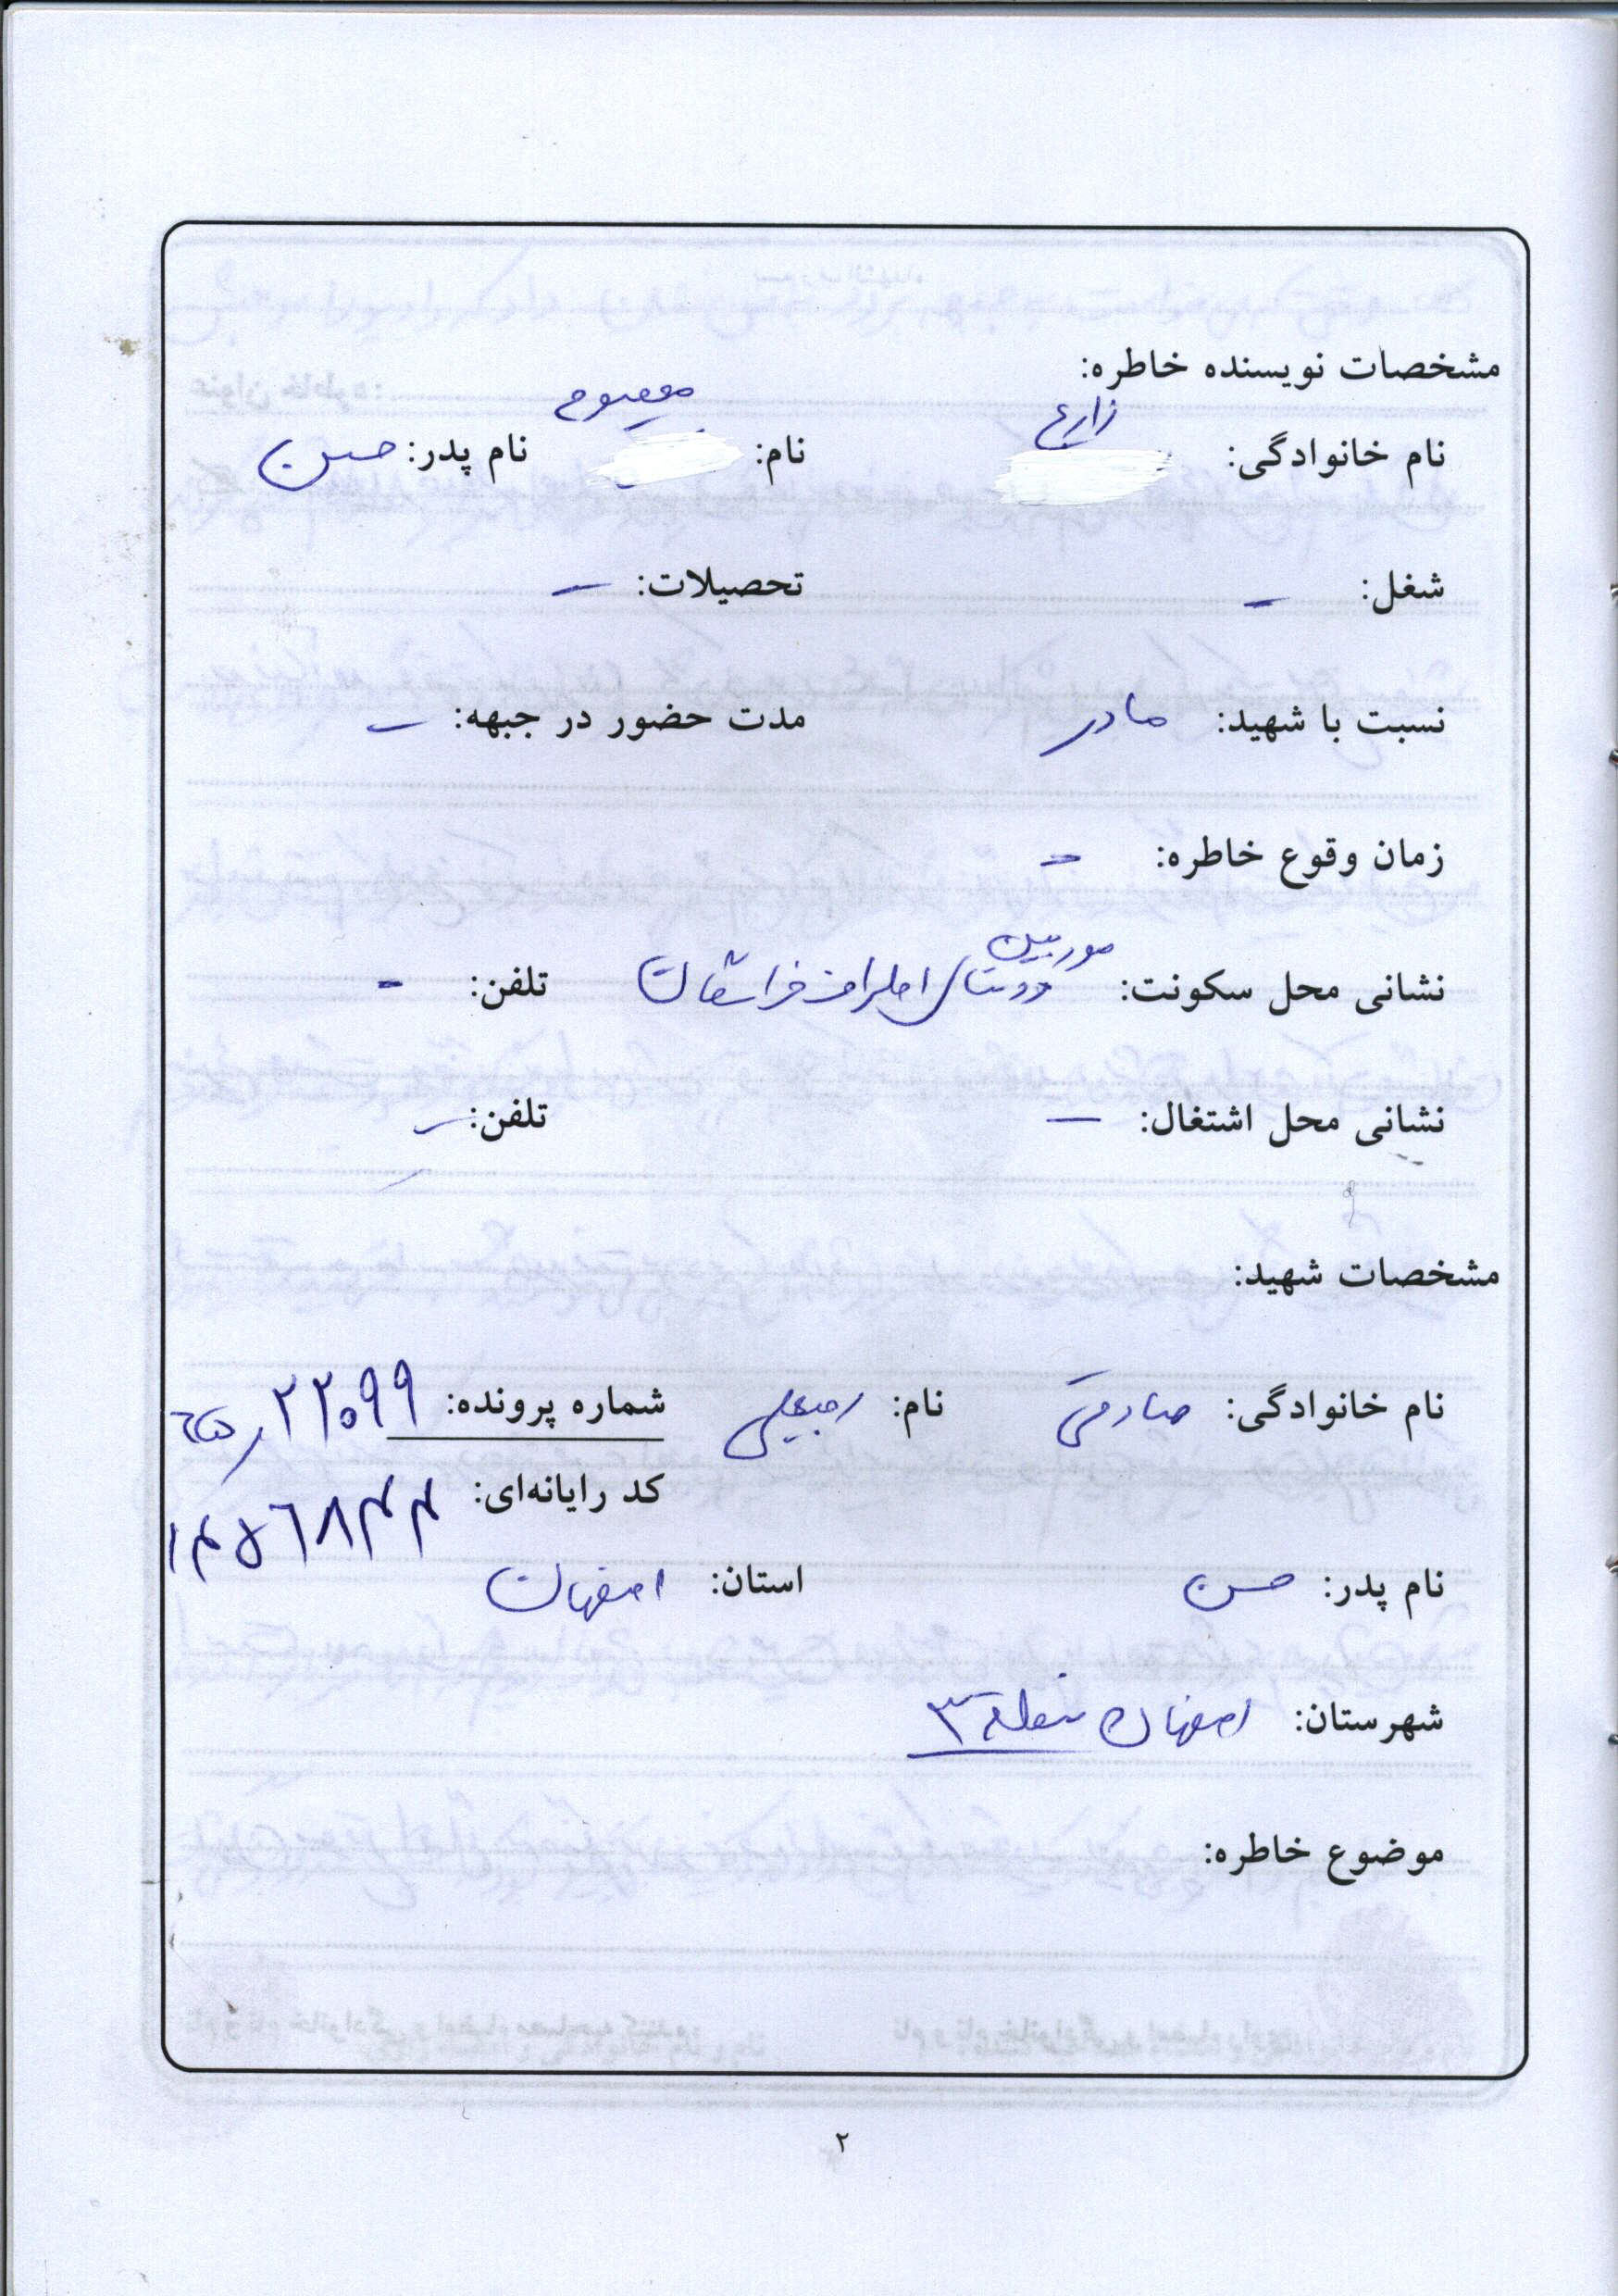 مشخصات نویسنده خاطره:
نام خانوادگی: زارع نام: معصومه نام پدر: حسن
شغل: - تحصیلات: -
نسبت با شهید: مادر مدت حضور در جبهه: -
زمان وقوع خاطره: -
نشانی محل سکونت: اطراف تلفن: -
نشانی محل اشتغال: - تلفن: -
مشخصات شهید:
نام خانوادگی: صادقی نام: رجبعلی شماره پرونده: ۲۲۰۹۹
کد رایانه‌ای: ۱۴۵۶۸۴۴
نام پدر: حسن استان: اصفهان
شهرستان: اصفهان منطقه ۳
موضوع خاطره:
۲